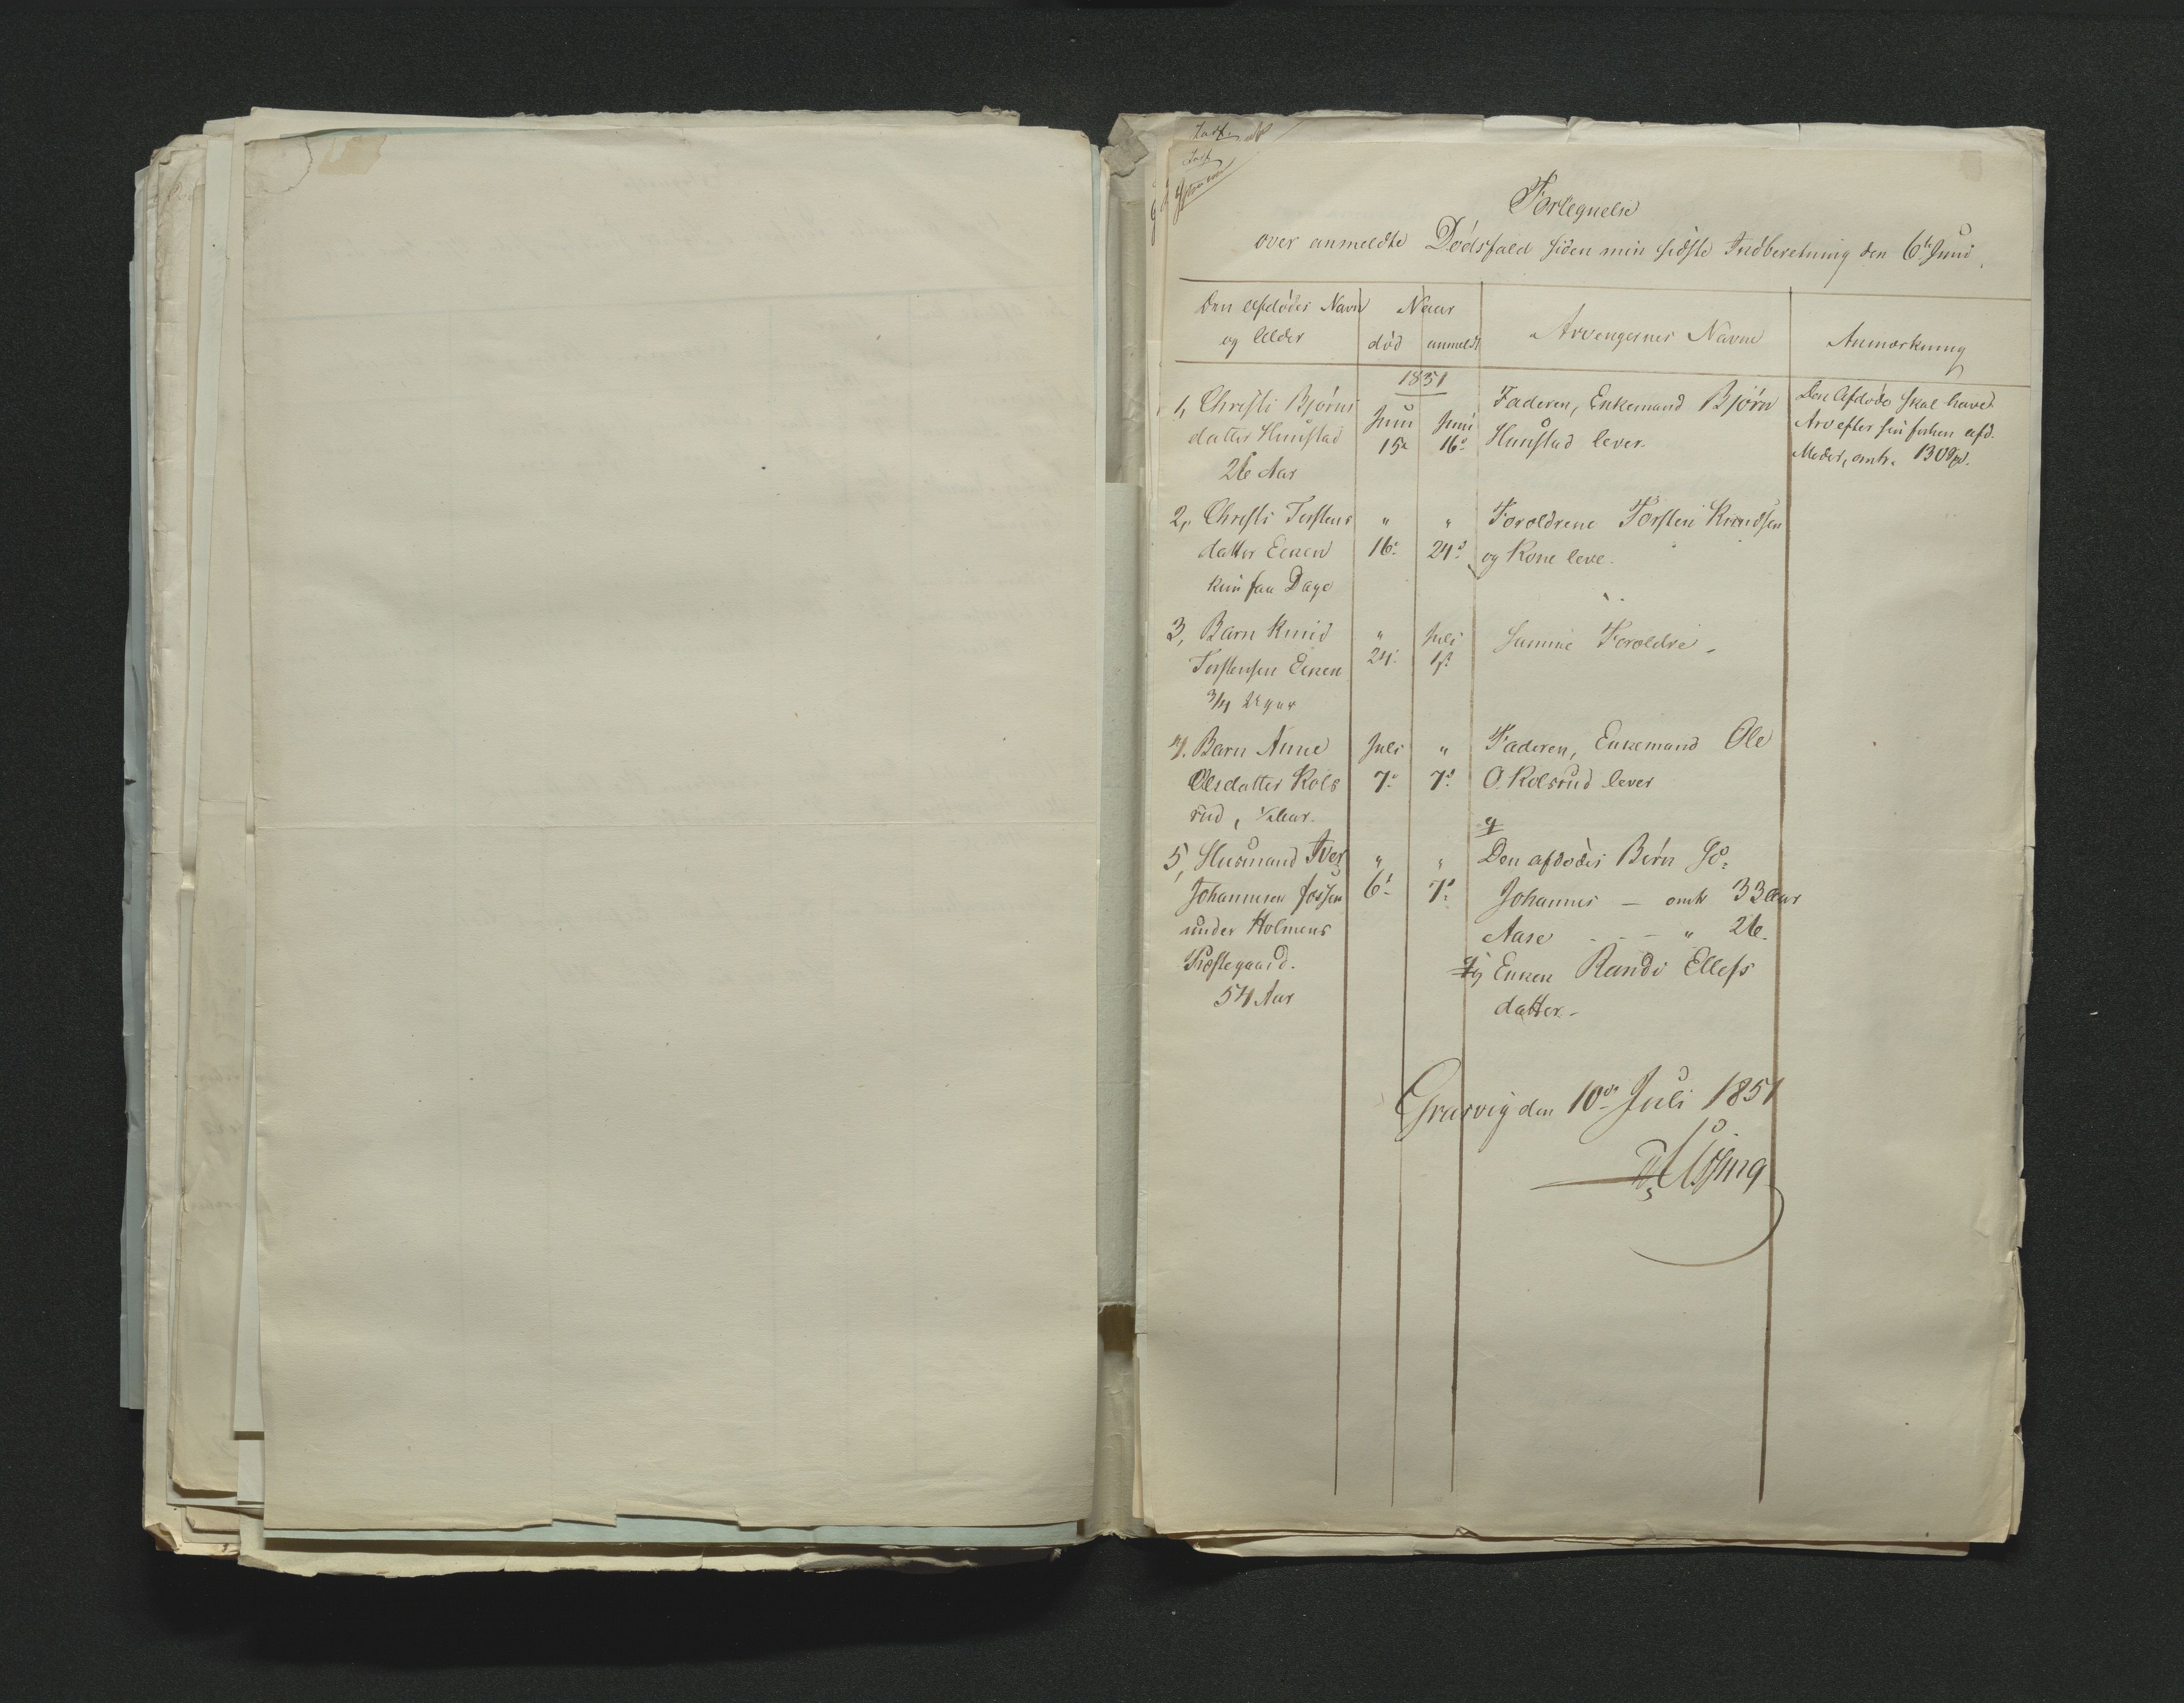 Fortegnelse
over anmeldte Dødsfald siden min sidste Indberetning den 6te Juni.
Den Afdødes Navn og Alder
Naar
død
anmeldt
Arvingernes Navne
Anmærkning
1851
1, Christi Bjørns
datter Hunstad
26 Aar
Juni
15de
Juni
16de
Faderen, Enkemand Bjørn
Hunstad lever.
Den Afdøde skal have
Arv efter sin forhen afd.
Moder, omtr. 130 Spd.
2, Christi Torstens
datter Eeken
kun faa Dage
"
16de
"
24de
Forældrene Torsten Knudsen
og Kone leve.
3, Barn Knud
Torstensen Eeken
3/4 Aar
"
24.
Juli
1ste
Samme Forældre -
4. Barn Anne
Olsdatter Kols
rud, 1/2 Aar.
Juli
7de
"
7de
Faderen, Enkemand Ole
O. Kolsrud lever
5, Huusmand Iver
Johannesen Fossen
under Holmens
Præstegaard.
54 Aar
"
6te
"
7de
Den afdødes Børn
Johannes — omtr 33 Aar
Aase - - - " 26.
og Enken Randi Ellefs
datter.-
Grasvig den 10de Juli 1851
Ussing